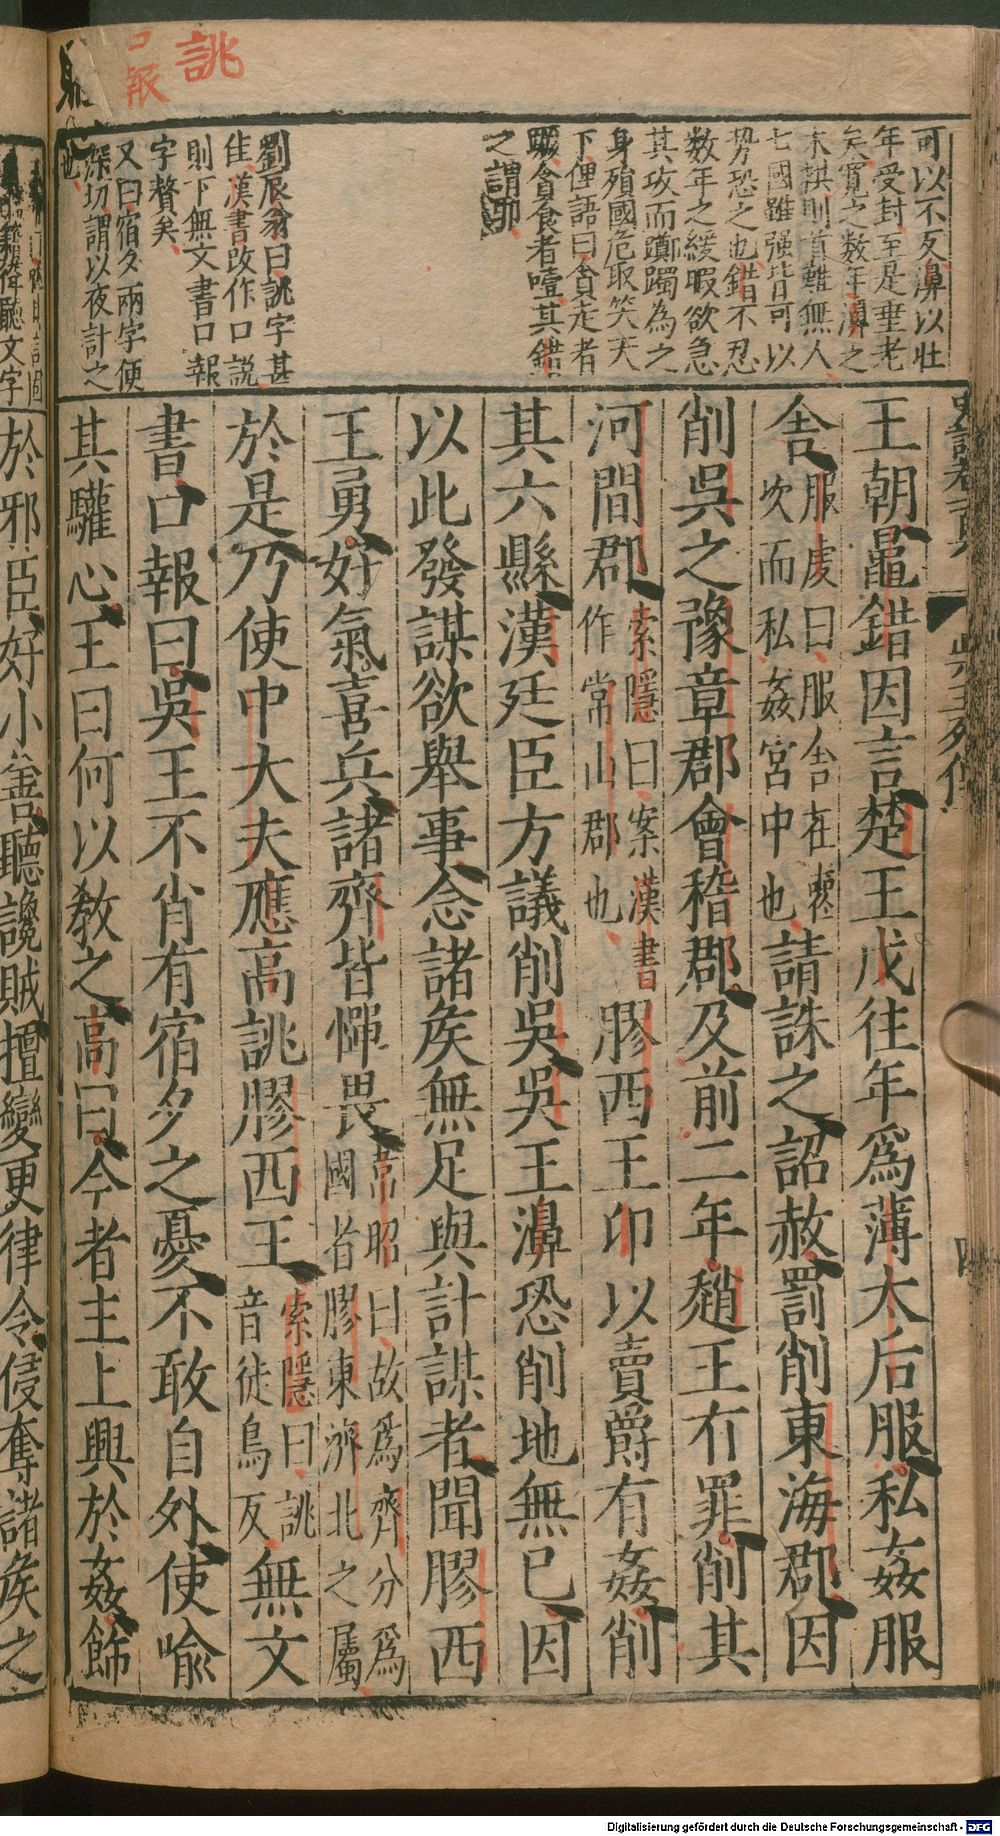 誂
口報
可以不反濞以壯
年受封至是垂老
矣寬之数年濞之
木拱則首難無人
七國雖强皆可以
势恐之也錯不忍
数年之緩暇欲急
其攻而躑躅為之
身殞國危取笑天
下俚語曰貪走者
蹶貪食者噎其錯
之謂耶
劉辰翁曰誂字甚
佳漢書改作口説
則下無文書口報
字贅矣
又曰宿夕兩字便
深切謂以夜計之
也
王朝鼂錯因言楚王戊往年爲薄太后服私姦服
舍服虔曰服舍在喪次而私姦宮中也請誅之詔赦罰削東海郡因
削吳之豫章郡會稽郡及前二年趙王有罪削其
河間郡索隱曰案漢書作常山郡也膠西王卬以賣爵有姦削
其六縣漢廷臣方議削吳吳王濞恐削地無已因
以此發謀欲舉事念諸矦無足與計謀者聞膠西
王勇好氣喜兵諸齊皆憚畏韋昭曰故爲齊分爲國者膠東濟北之屬
於是乃使中大夫應高誂膠西王索隱曰誂音徒鳥反無文
書口報曰吳王不肖有宿夕之憂不敢自外使喻
其驩心王曰何以敎之高曰今者主上興於姦飾
於邪臣好小善聽讒賊擅變更律令侵奪諸矦之
Digitalisierung gefördert durch die Deutsche Forschungsgemeinschaft - DFG